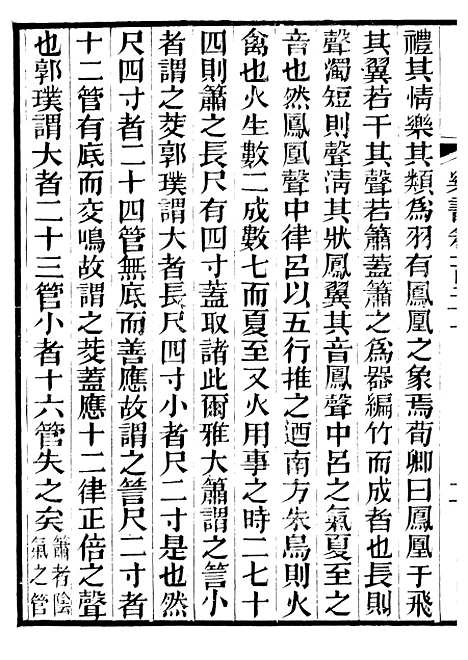 禮其情樂其類為羽有鳳凰之象焉荀卿曰鳳凰于飛
其翼若干其聲若簫蓋簫之為器編竹而成者也長則
聲濁短則聲淸其狀鳳翼其音鳳聲中呂之氣夏至之
音也然鳳凰聲中律呂以五行推之迺南方朱鳥則火
禽也火生數二成數七而夏至又火用事之時二七十
四則簫之長尺有四寸蓋取諸此爾雅大簫謂之䇾小
者謂之茭郭璞謂大者長尺四寸小者尺二寸是也然
尺四寸者二十四管無底而善應故謂之䇾尺二寸者
十二管有底而交鳴故謂之茭蓋應十二律正倍之聲
也郭璞謂大者二十三管小者十六管失之矣簫者陰
氣之管